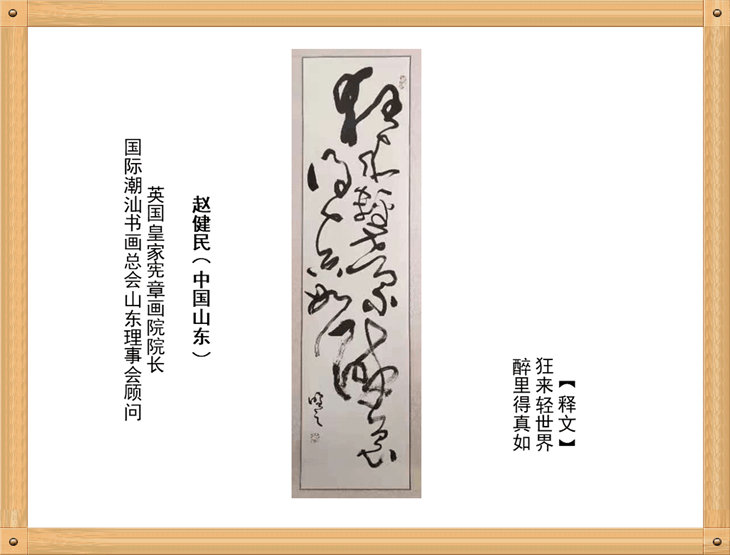 【释文】
狂来轻世界
醉里得真如
狂来轻世界醉里
得真如
赵健民（中国山东）
英国皇家宪章画院院长
国际潮汕书画总会山东理事会顾问